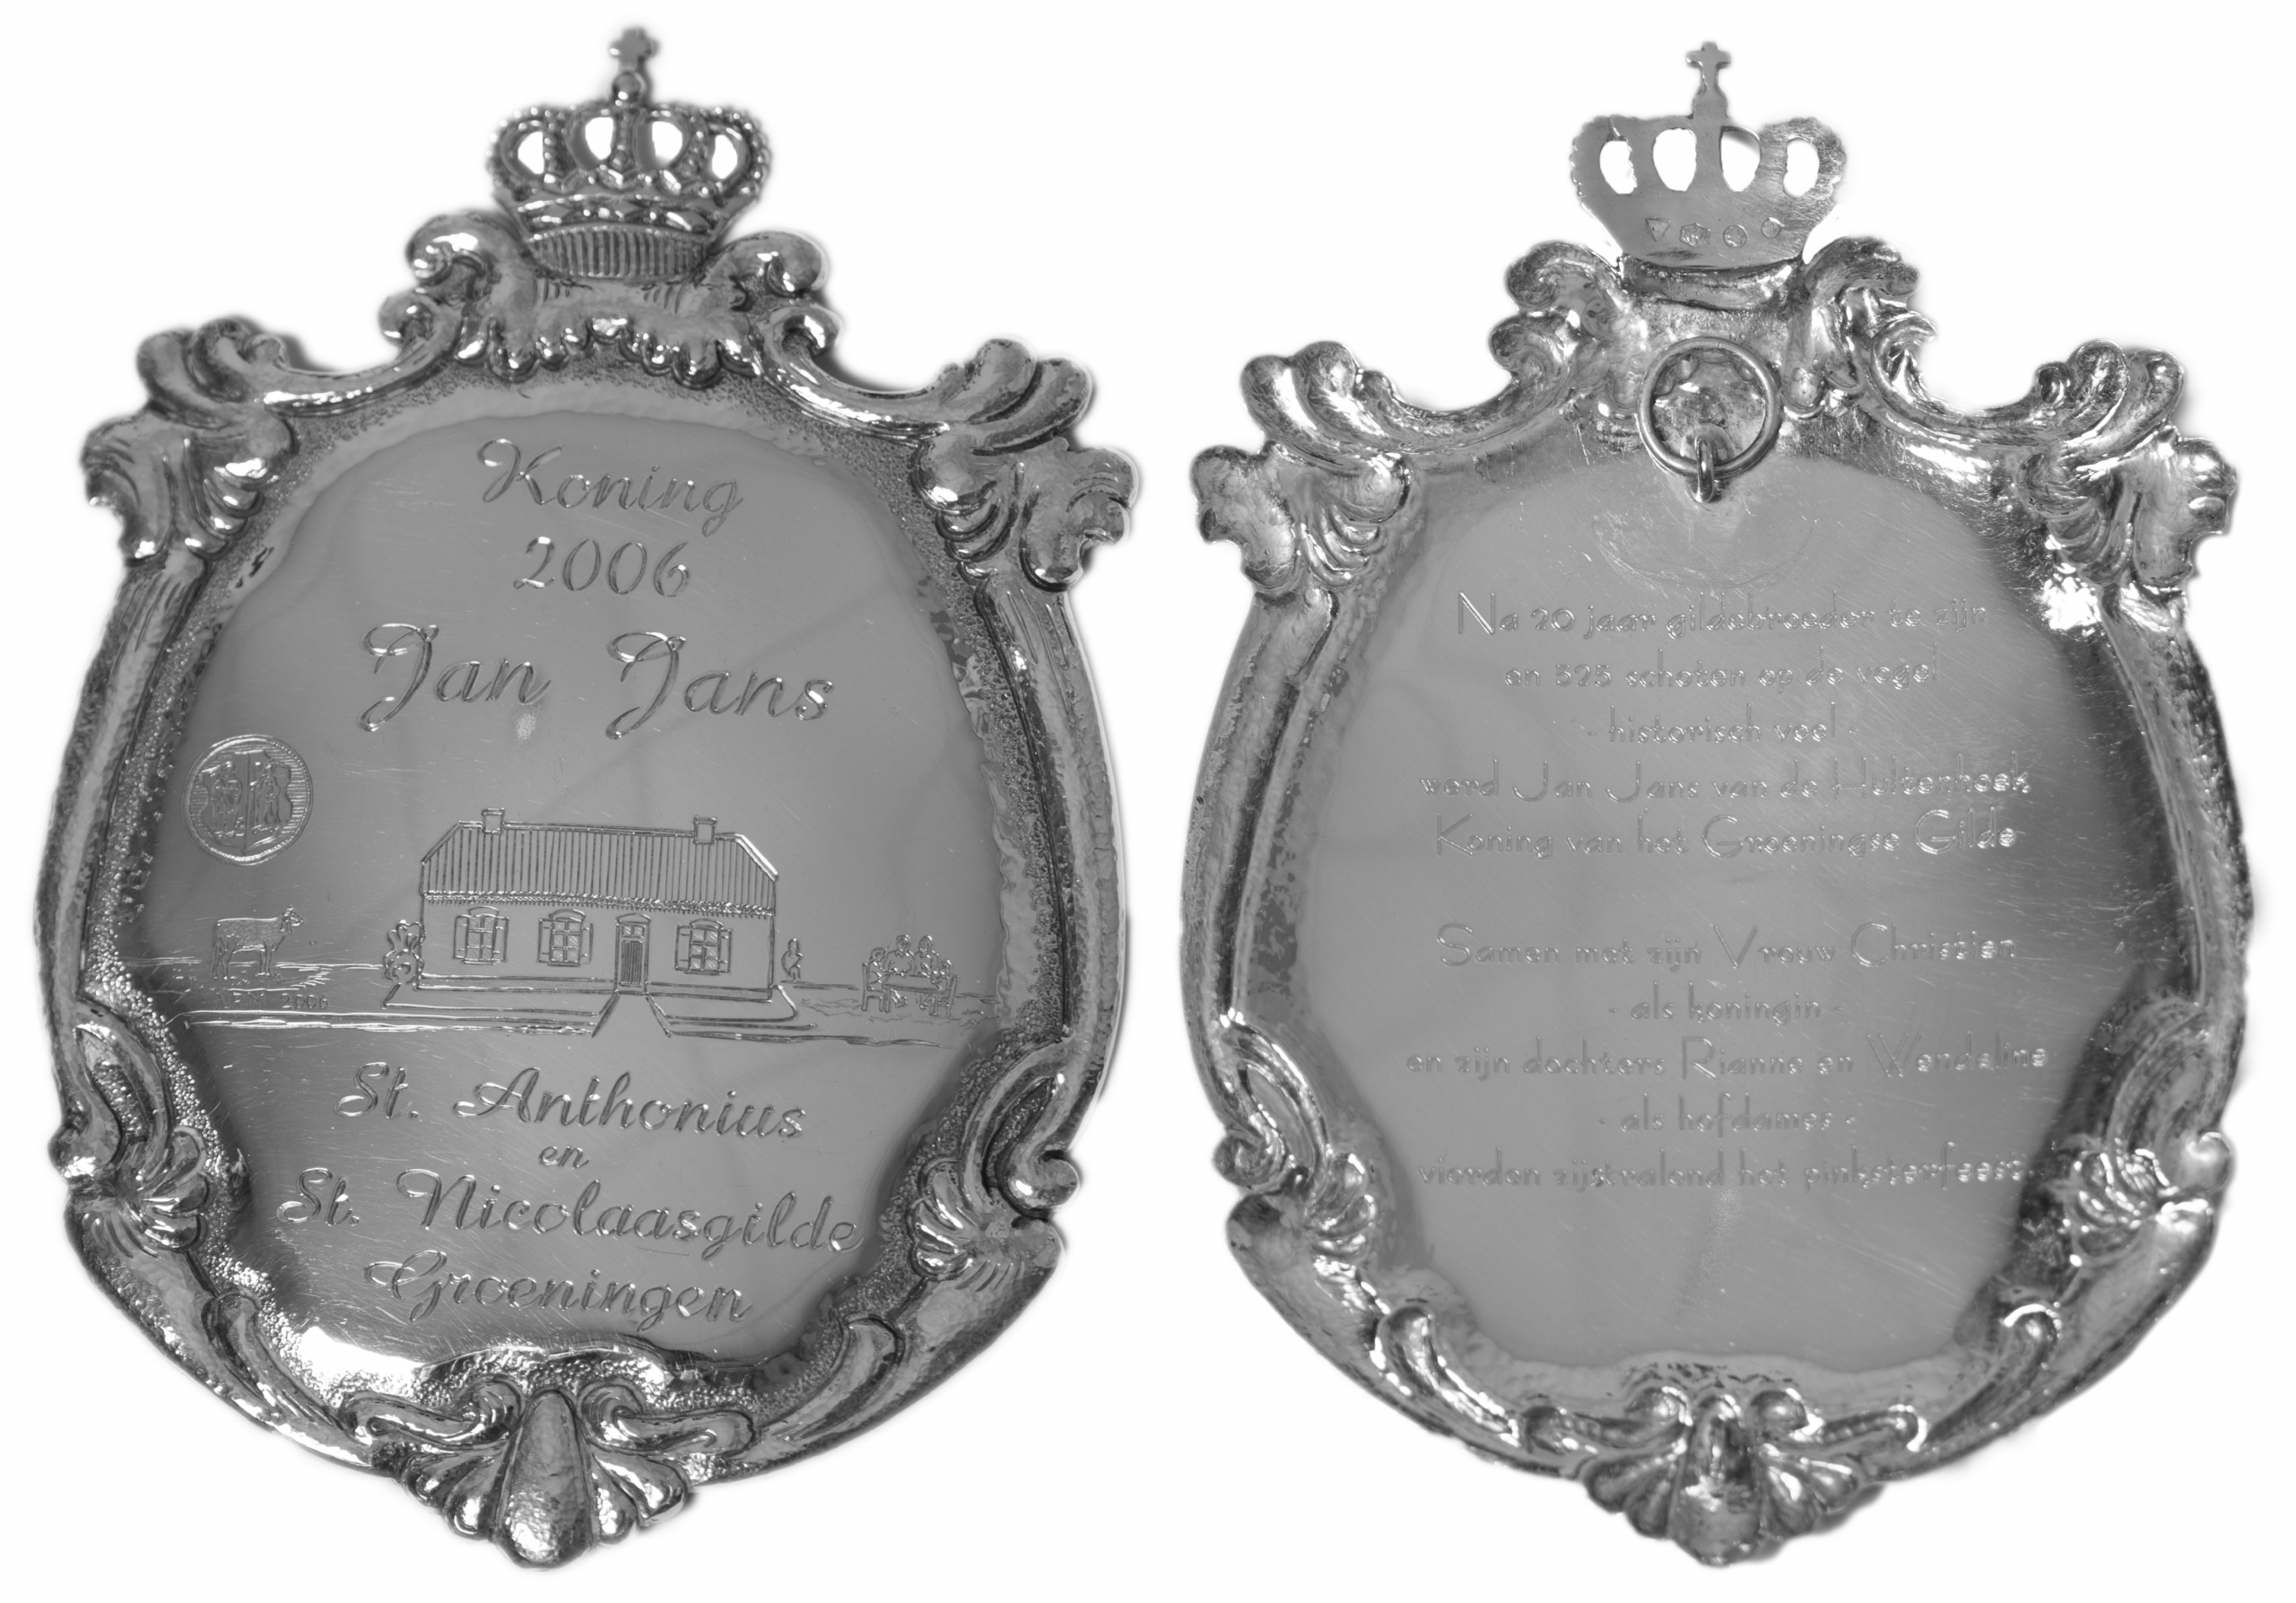 Koning
2006
Jan Jans
2006
St. Anthonius
en
St. Nicolaasgilde
Groeningen
Na 20 jaar gildebroeder te zijn
en 525 schoten op de vogel
- historisch veel -
werd Jan Jans van de Hultenhoek
Koning van het Groeningse Gilde
Samen met zijn Vrouw Christien
- als koningin -
en zijn dochters Rianne en Wendeline
- als hofdames -
vierden zijstralend het pinksterfeest